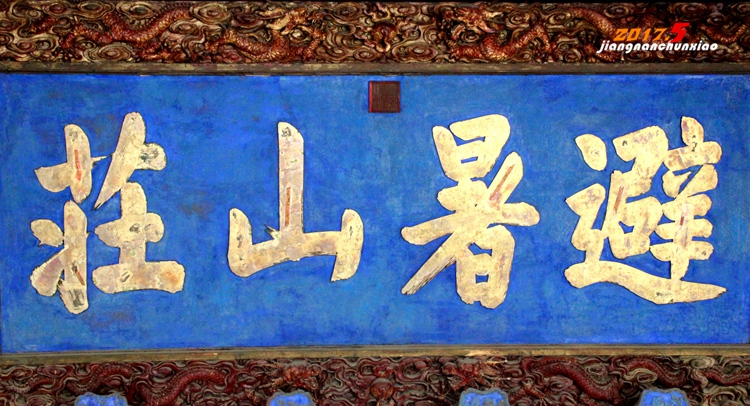 2017.5
jiangnanchunxiao
避暑山莊